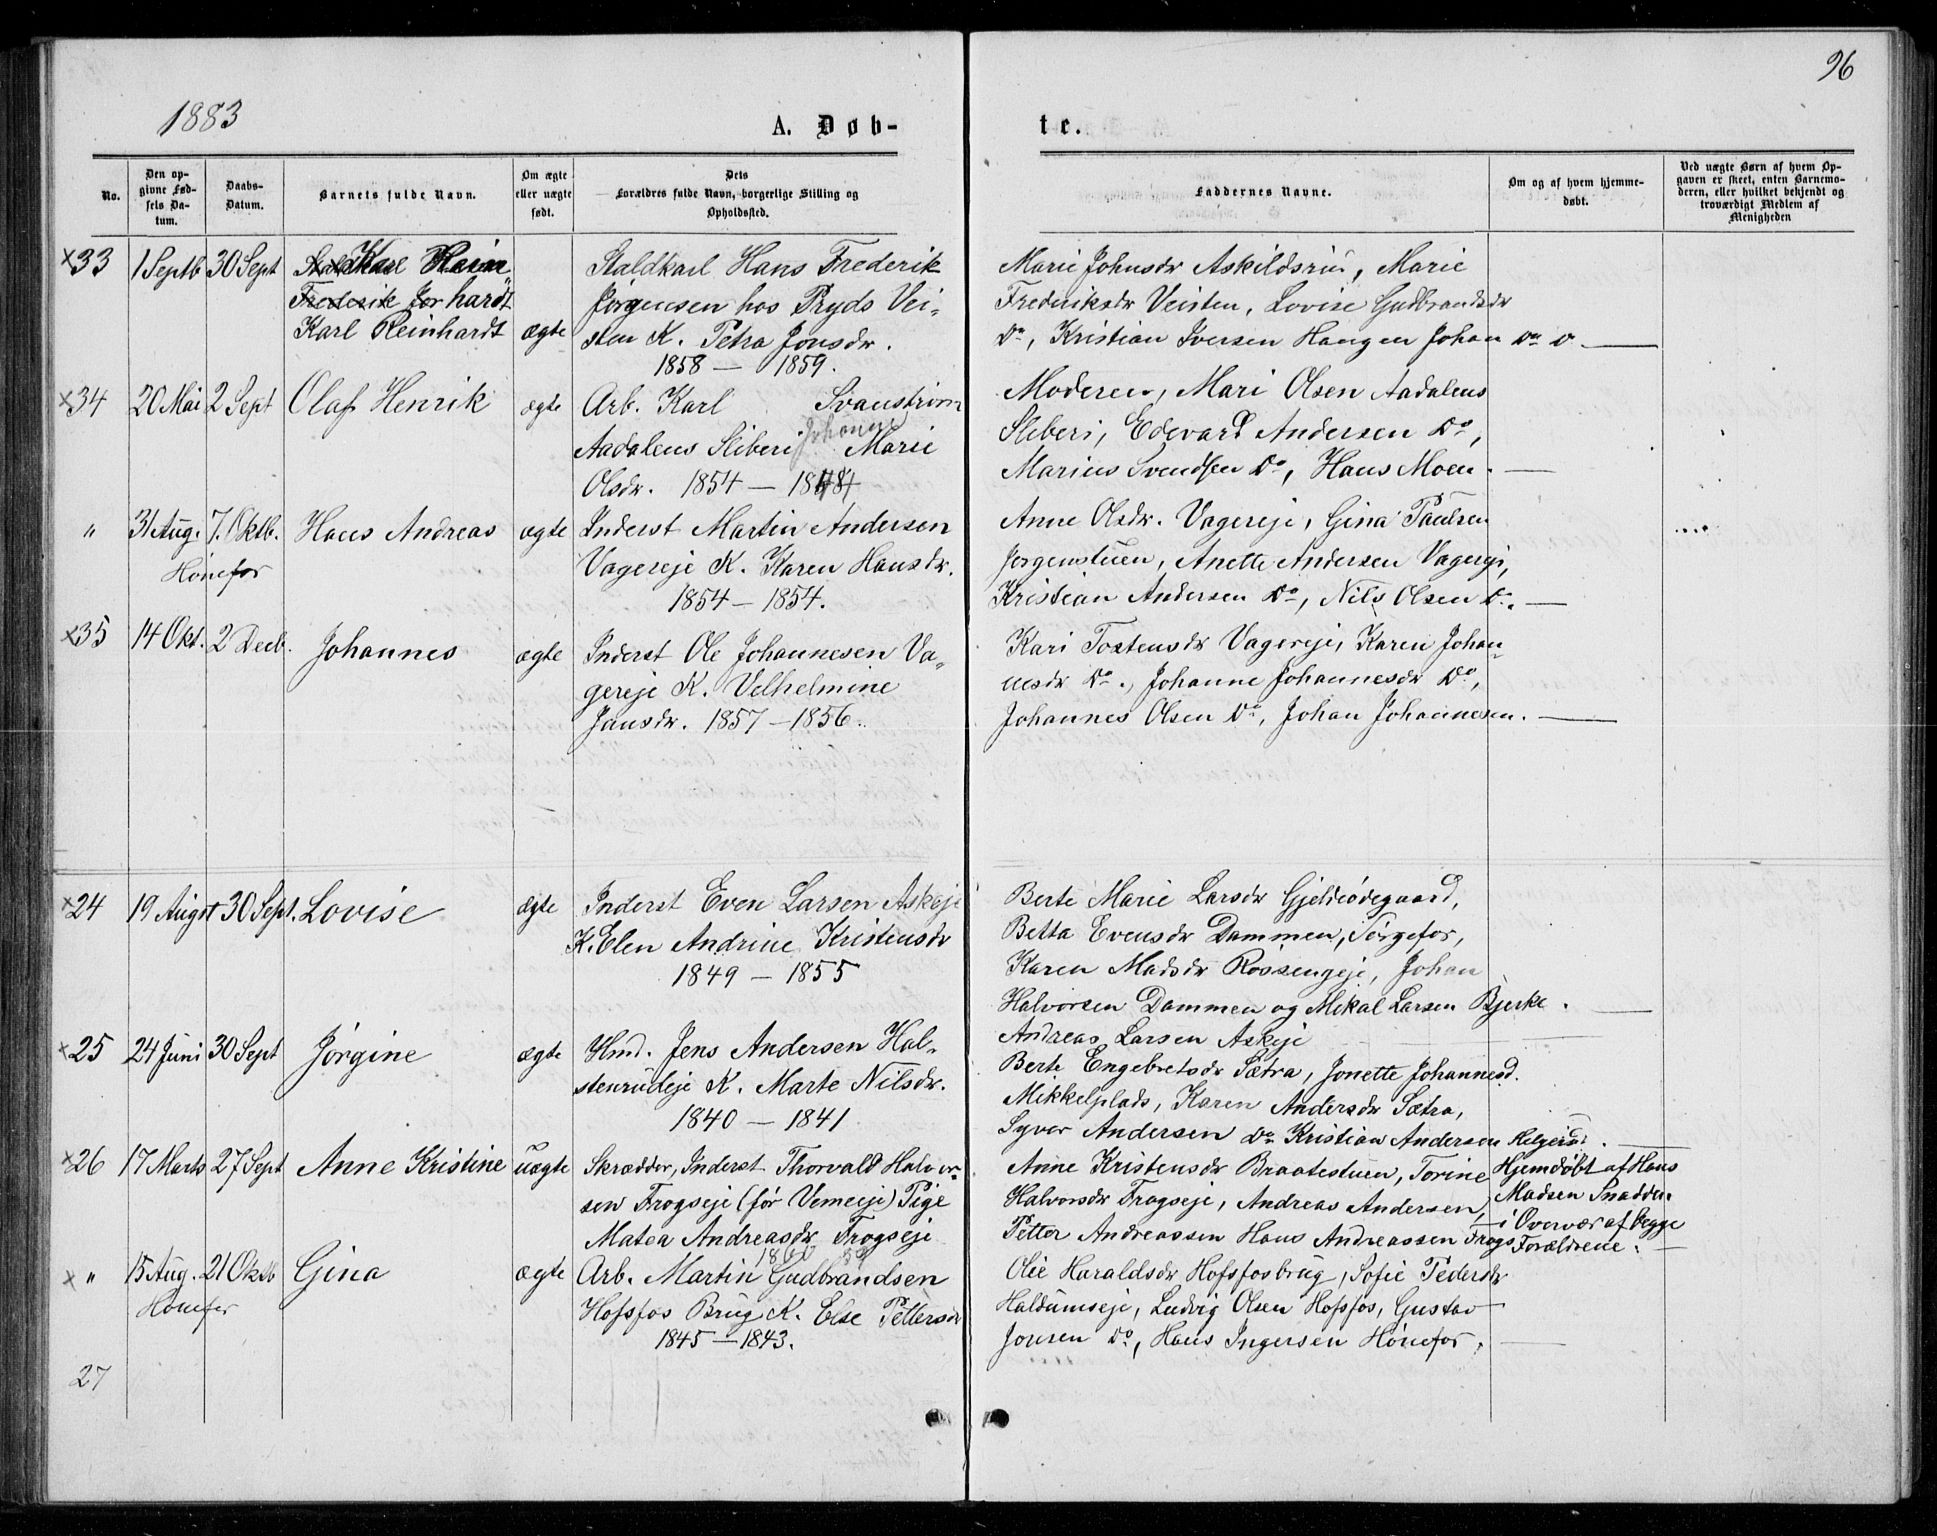 96
1883
A. Døb-
te.
No.
Den op-
givne Fød-
sels Da-
tum.
Daabs-
Datum.
Barnets fulde Navn.
Om ægte
eller uægte
født.
Dets
Forældres fulde Navn, borgerlige Stilling og
Opholdssted.
Faddernes Navne.
Om og af hvem hjemme-
døbt.
Ved uægte Børn af hvem Op-
gaven er skeet, enten Barnemo-
deren, eller hvilket bekjendt og
troværdigt Medlem af
Menigheden
×33 1 Septb 30 Sept
Karl Reinhardt ægte
Staldkarl Hans Frederik
Jørgensen hos Pryds Vei-
sten K. Petra Jonsdr.
1858 — 1859.
Marie Johnsdr Askildsrud, Marie
Frederiksdr Veisten, Lovise Gudbrandsdr
Do, Kristian Iversen Haugen Johan Do o
×34 20 Mai 2 Sept Olaf Henrik ægte
Arb. Karl Svanstrøm
Aadalens Sliberi Johanne Marie
Olsdr. 1854 — 1848
Moderen, Mari Olsen Aadalens
Sliberi, Edevard Andersen Do,
Marius Svendsen Do, Hans Moen.
" 31 Aug. 7. Oktb. Hans Andreas ægte
Hønefos
Inderst Martin Andersen
Vagereje K. Karen Hansdr.
1854 — 1854.
Anne Olsdr. Vagereje, Gina Paulsen
Jørgenstuen, Anette Andersen Vagereje,
Kristian Andersen Do, Nils Olsen Do.
×35 14 Okt. 2 Decb. Johannes ægte
Inderst Ole Johannesen Va-
gereje K. Velhelmine
Jansdr. 1857 — 1856.
Kari Tostensdr Vagereje, Karen Johan-
nesdr Do., Johanne Johannesdr Do,
Johannes Olsen Do, Johan Johannesen.
×24 19 August 30 Sept. Lovise ægte
Inderst Even Larsen Askeje
K. Elen Andrine Kristensdr
1849 — 1855
Berte Marie Larsdr Gjeldeødegaard,
Betta Evensdr Dammen, Torgefor,
Karen Madsdr Rossengeje, Johan
Halvorsen Dammen og Mikal Larsen Bjerke.
Andreas Larsen Askeje
×25 24 Juni 30 Sept Jørgine ægte
Hmd. Jens Andersen Hal-
stenrudeje K. Marte Nilsdr.
1840 — 1841
Berte Engebretsdr Sætra, Jonette Johannesd.
Mikkelplads, Karen Andersdr Sætra,
Syver Andersen Do Kristian Andersen Helgerud.
×26 17 Marts 27 Sept Anne Kristine uægte
Skrædder, Inderst Thorvald Halvor-
sen Frogseje (før Vemeeje) Pige
Matea Andreasdr Frogseje
1860 59
Anne Kristensdr Braatestuen, Torine
Halvorsdr Frogseje, Andreas Andersen,
Petter Andreassen Hans Andreassen Frogs
Hjemdøbt af Hans
Madsen Snadden
i Overvær af begge
Forældrene.
× " 15 Aug. 21 Oktb Gina ægte
Hønefos
Arb. Martin Gudbrandsen
Hofsfos Brug K. Else Pettersdr
1845 — 1843.
Olie Haraldsdr Hofsfosbrug, Sofie Pedersdr
Haldumseje, Ludvig Olsen Hofsfos, Gustav
Jonsen Do, Hans Ingersen Hønefos.
27